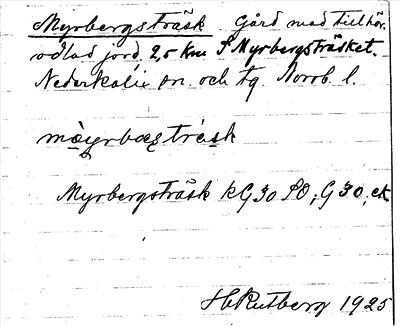 Myrbergsträsk Gård med tillhör.
odlad jord 2,5 km S Myrbergsträsket.
Nederkalix sn. och tg. Norrb. l.
Myrbergsträsk kG 30 SO; G 30, ek
H Rutberg 1925